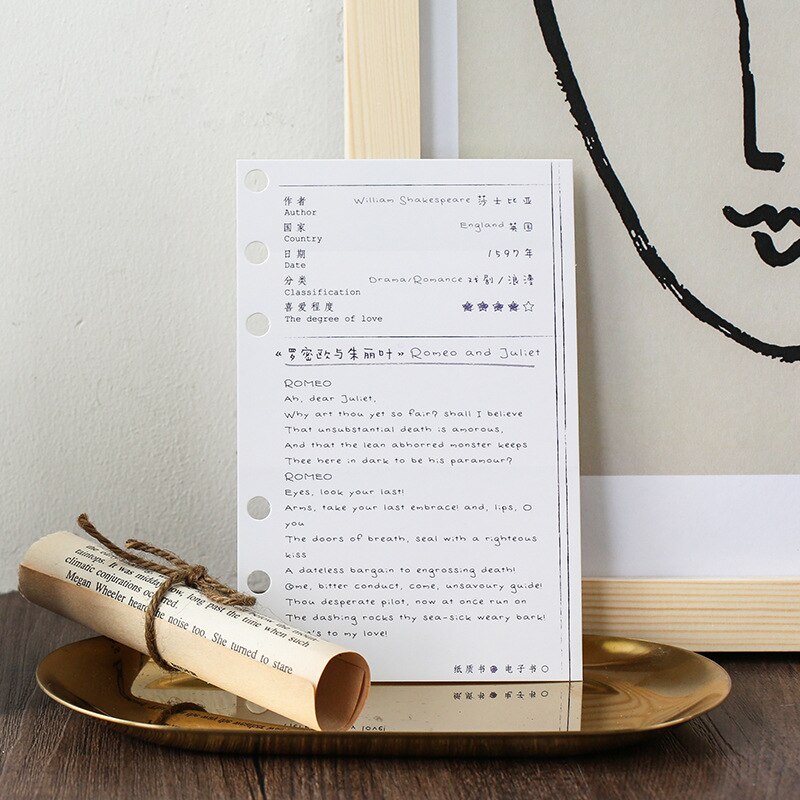 作者 William Shakespeare 莎士比亚
Author
国家 England 英国
Country
日期 1597年
Date
分类 Drama/Romance 戏剧/浪漫
Classification
喜爱程度 ★★★★☆
The degree of love
《罗密欧与朱丽叶》 Romeo and Juliet
ROMEO
Ah, dear Juliet,
Why art thou yet so fair? shall I believe
That unsubstantial death is amorous,
And that the lean abhorred monster keeps
Thee here in dark to be his paramour?
ROMEO
Eyes, look your last!
Arms, take your last embrace! and, lips, O
you
The doors of breath, seal with a righteous
kiss
A dateless bargain to engrossing death!
Come, bitter conduct, come, unsavoury guide!
Thou desperate pilot, now at once run on
The dashing rocks thy sea-sick weary bark!
's to my love!
纸质书 电子书
climatic conjurations occurred.
It was midway long past the time when such
Megan Wheeler heard the noise too. She turned to stare